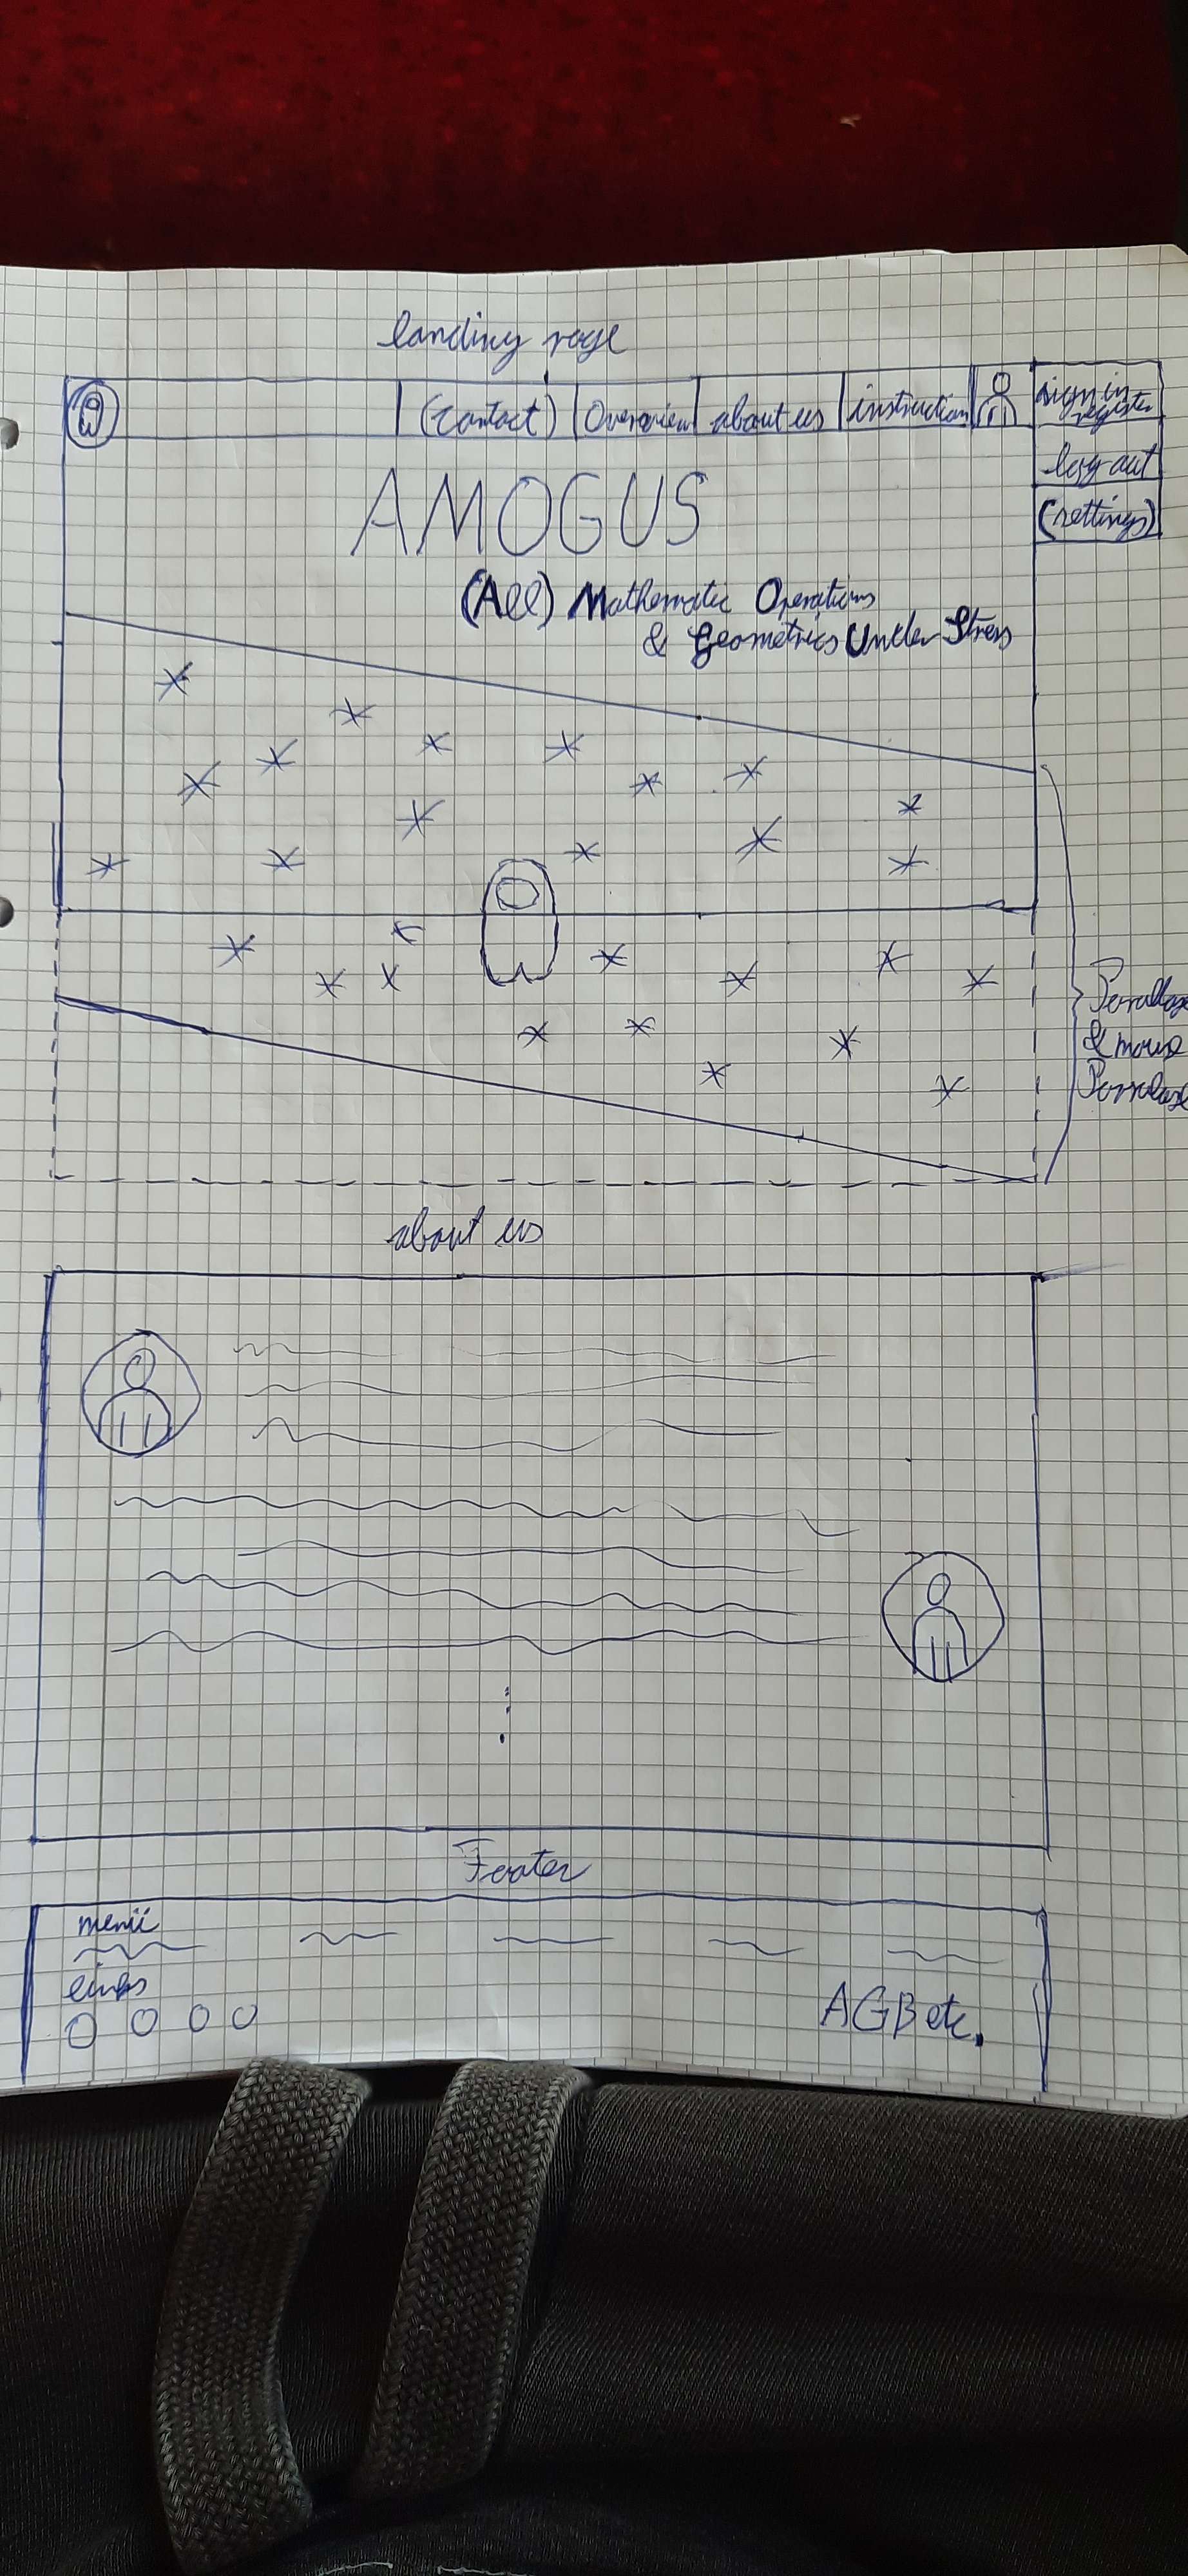 landing page
(contact) Overview about us instruction sign in
register
log out
(settings)
AMOGUS
(All) Mathematic Operations
& Geometrics Under Stress
Parallax
& mouse
Parallax
about us
Footer
menü
AGB etc.